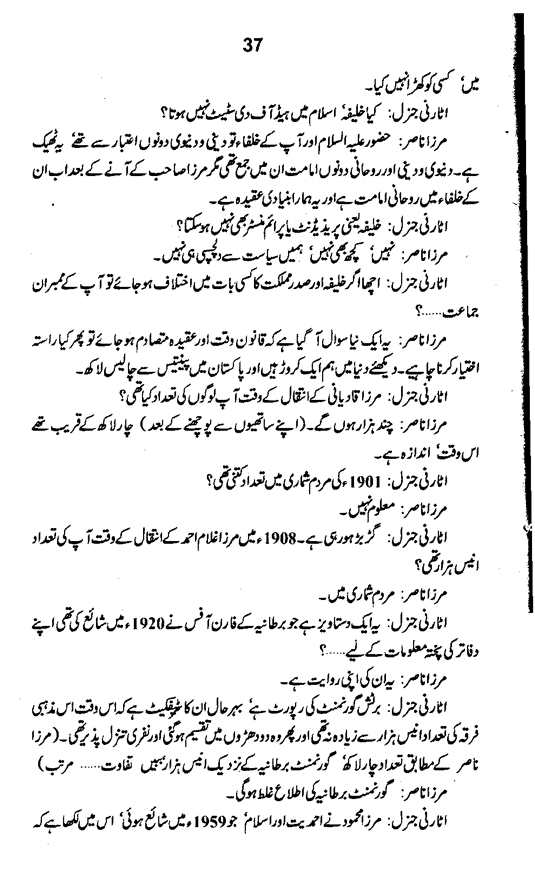 37
میں‘ کسی کو کھڑا نہیں کیا۔
اٹارنی جنرل: کیا خلیفہ‘ اسلام میں ہیڈ آف دی سٹیٹ نہیں ہوتا؟
مرزا ناصر: حضور علیہ السلام اور آپ کے خلفاء تو دینی و دنیوی دونوں اعتبار سے تھے‘ یہ ٹھیک
ہے۔ دنیوی و دینی اور روحانی دونوں امامت ان میں جمع تھی مگر مرزا صاحب کے آنے کے بعد اب ان
کے خلفاء میں روحانی امامت ہے اور یہ ہمارا بنیادی عقیدہ ہے۔
اٹارنی جنرل: خلیفہ یعنی پریذیڈنٹ یا پرائم منسٹر بھی نہیں ہو سکتا؟
مرزا ناصر: نہیں‘ کچھ بھی نہیں‘ ہمیں سیاست سے دلچسپی ہی نہیں۔
اٹارنی جنرل: اچھا اگر خلیفہ اور صدر مملکت کا کسی بات میں اختلاف ہو جائے تو آپ کے ممبران
جماعت......؟
مرزا ناصر: یہ ایک نیا سوال آ گیا ہے کہ قانون وقت اور عقیدہ متصادم ہو جائے تو پھر کیا راستہ
اختیار کرنا چاہیے۔ دیکھئے دنیا میں ہم ایک کروڑ ہیں اور پاکستان میں پینتیس سے چالیس لاکھ۔
اٹارنی جنرل: مرزا قادیانی کے انتقال کے وقت آپ لوگوں کی تعداد کیا تھی؟
مرزا ناصر: چند ہزار ہوں گے۔ (اپنے ساتھیوں سے پوچھنے کے بعد) چار لاکھ کے قریب تھے
اس وقت‘ اندازہ ہے۔
اٹارنی جنرل: 1901ء کی مردم شماری میں تعداد کتنی تھی؟
مرزا ناصر: معلوم نہیں۔
اٹارنی جنرل: گڑبڑ ہو رہی ہے۔ 1908ء میں مرزا غلام احمد کے انتقال کے وقت آپ کی تعداد
انیس ہزار تھی؟
مرزا ناصر: مردم شماری میں۔
اٹارنی جنرل: یہ ایک دستاویز ہے جو برطانیہ کے فارن آفس نے 1920ء میں شائع کی تھی اپنے
دفاتر کی پختہ معلومات کے لیے......؟
مرزا ناصر: یہ ان کی اپنی روایت ہے۔
اٹارنی جنرل: برٹش گورنمنٹ کی رپورٹ ہے‘ بہر حال ان کا سرٹیفکیٹ ہے کہ اس وقت اس مذہبی
فرقہ کی تعداد انیس ہزار سے زیادہ نہ تھی اور پھر وہ دو دھڑوں میں تقسیم ہو گئی اور نفری تنزل پذیر تھی۔ (مرزا
ناصر کے مطابق تعداد چار لاکھ‘ گورنمنٹ برطانیہ کے نزدیک انیس ہزار ببیں تفاوت...... مرتب)
مرزا ناصر: گورنمنٹ برطانیہ کی اطلاع غلط ہو گی۔
اٹارنی جنرل: مرزا محمود نے احمدیت اور اسلام‘ جو 1959ء میں شائع ہوئی‘ اس میں لکھا ہے کہ